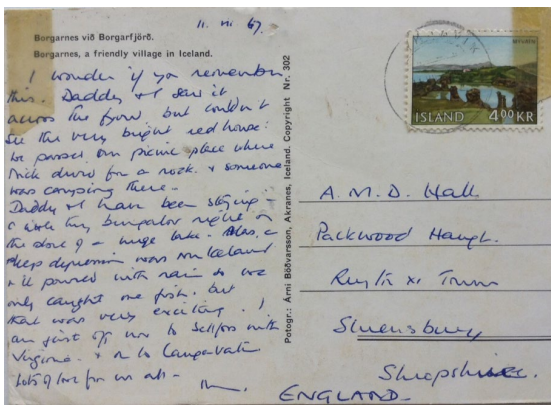 11. vii 67.
Borgarnes við Borgarfjörð.
Borgarnes, a friendly village in Iceland.
I wonder if you remember
this. Daddy & I saw it
across the fjord but couldn't
see the very bright red house.
We passed our picnic place where
Nick dived for a rock. & someone
was camping there.
Daddy & I have been staying in
a little tiny bungalow right on
the shore of a huge lake. Alas, a
deep depression was on Iceland
& it poured with rain so we
only caught one fish. but
that was very exciting. I
am just off now to Selfoss with
Virginia. & on to Laugarvatn
Lots of love from us all -
Potogr.: Árni Böðvarsson, Akranes, Iceland. Copyright Nr. 302
MÝVATN
ÍSLAND 4.00 KR
A. M. D. Hall
Packwood Haugh
Ruyton XI Towns
Shrewsbury
Shropshire.
ENGLAND-